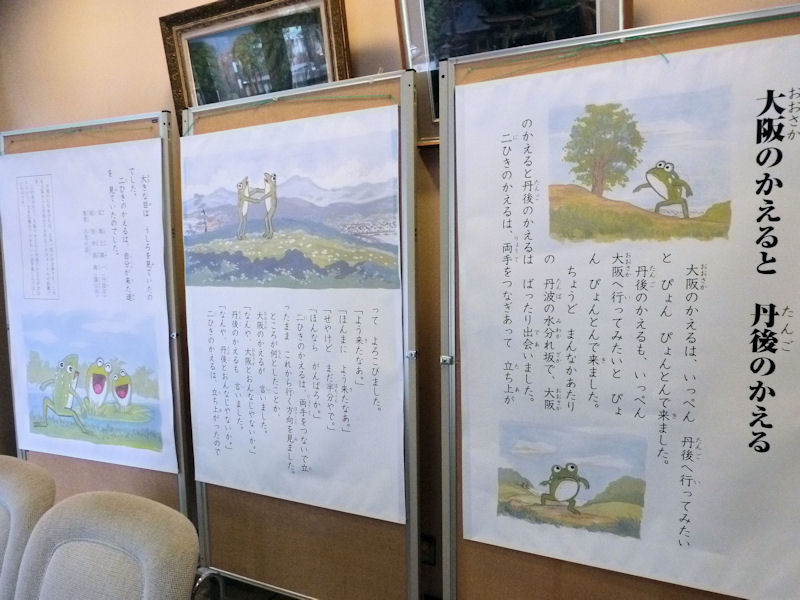 大阪のかえると 丹後のかえる
大阪のかえるは、いっぺん 丹後へ行ってみたい
と ぴょん ぴょんとんで来ました。
丹後のかえるも、いっぺん
大阪へ行ってみたいと ぴょ
ん ぴょんとんで来ました。
ちょうど まんなかあたり
の 丹波の水分れ坂で、大阪
のかえると丹後のかえるは ばったり出会いました。
二ひきのかえるは、両手をつなぎあって 立ち上が
って よろこびました。
「よう来たなあ。」
「ほんまに よう来たなあ。」
「せやけど まだ半分やで。」
「ほんなら がんばろか。」
二ひきのかえるは、両手をつないで立
ったまま これから行く方向を見ました。
ところが何としたことか、
大阪のかえるが 言いました。
「なんや、大阪とおんなじゃないか。」
丹後のかえるも 言いました。
「なんや、丹後とおんなじゃないか。」
二ひきのかえるは、立ち上がったので
大きな目は うしろを見ていたの
でした。
二ひきのかえるは、自分が来た道
を 見ていたのでした。